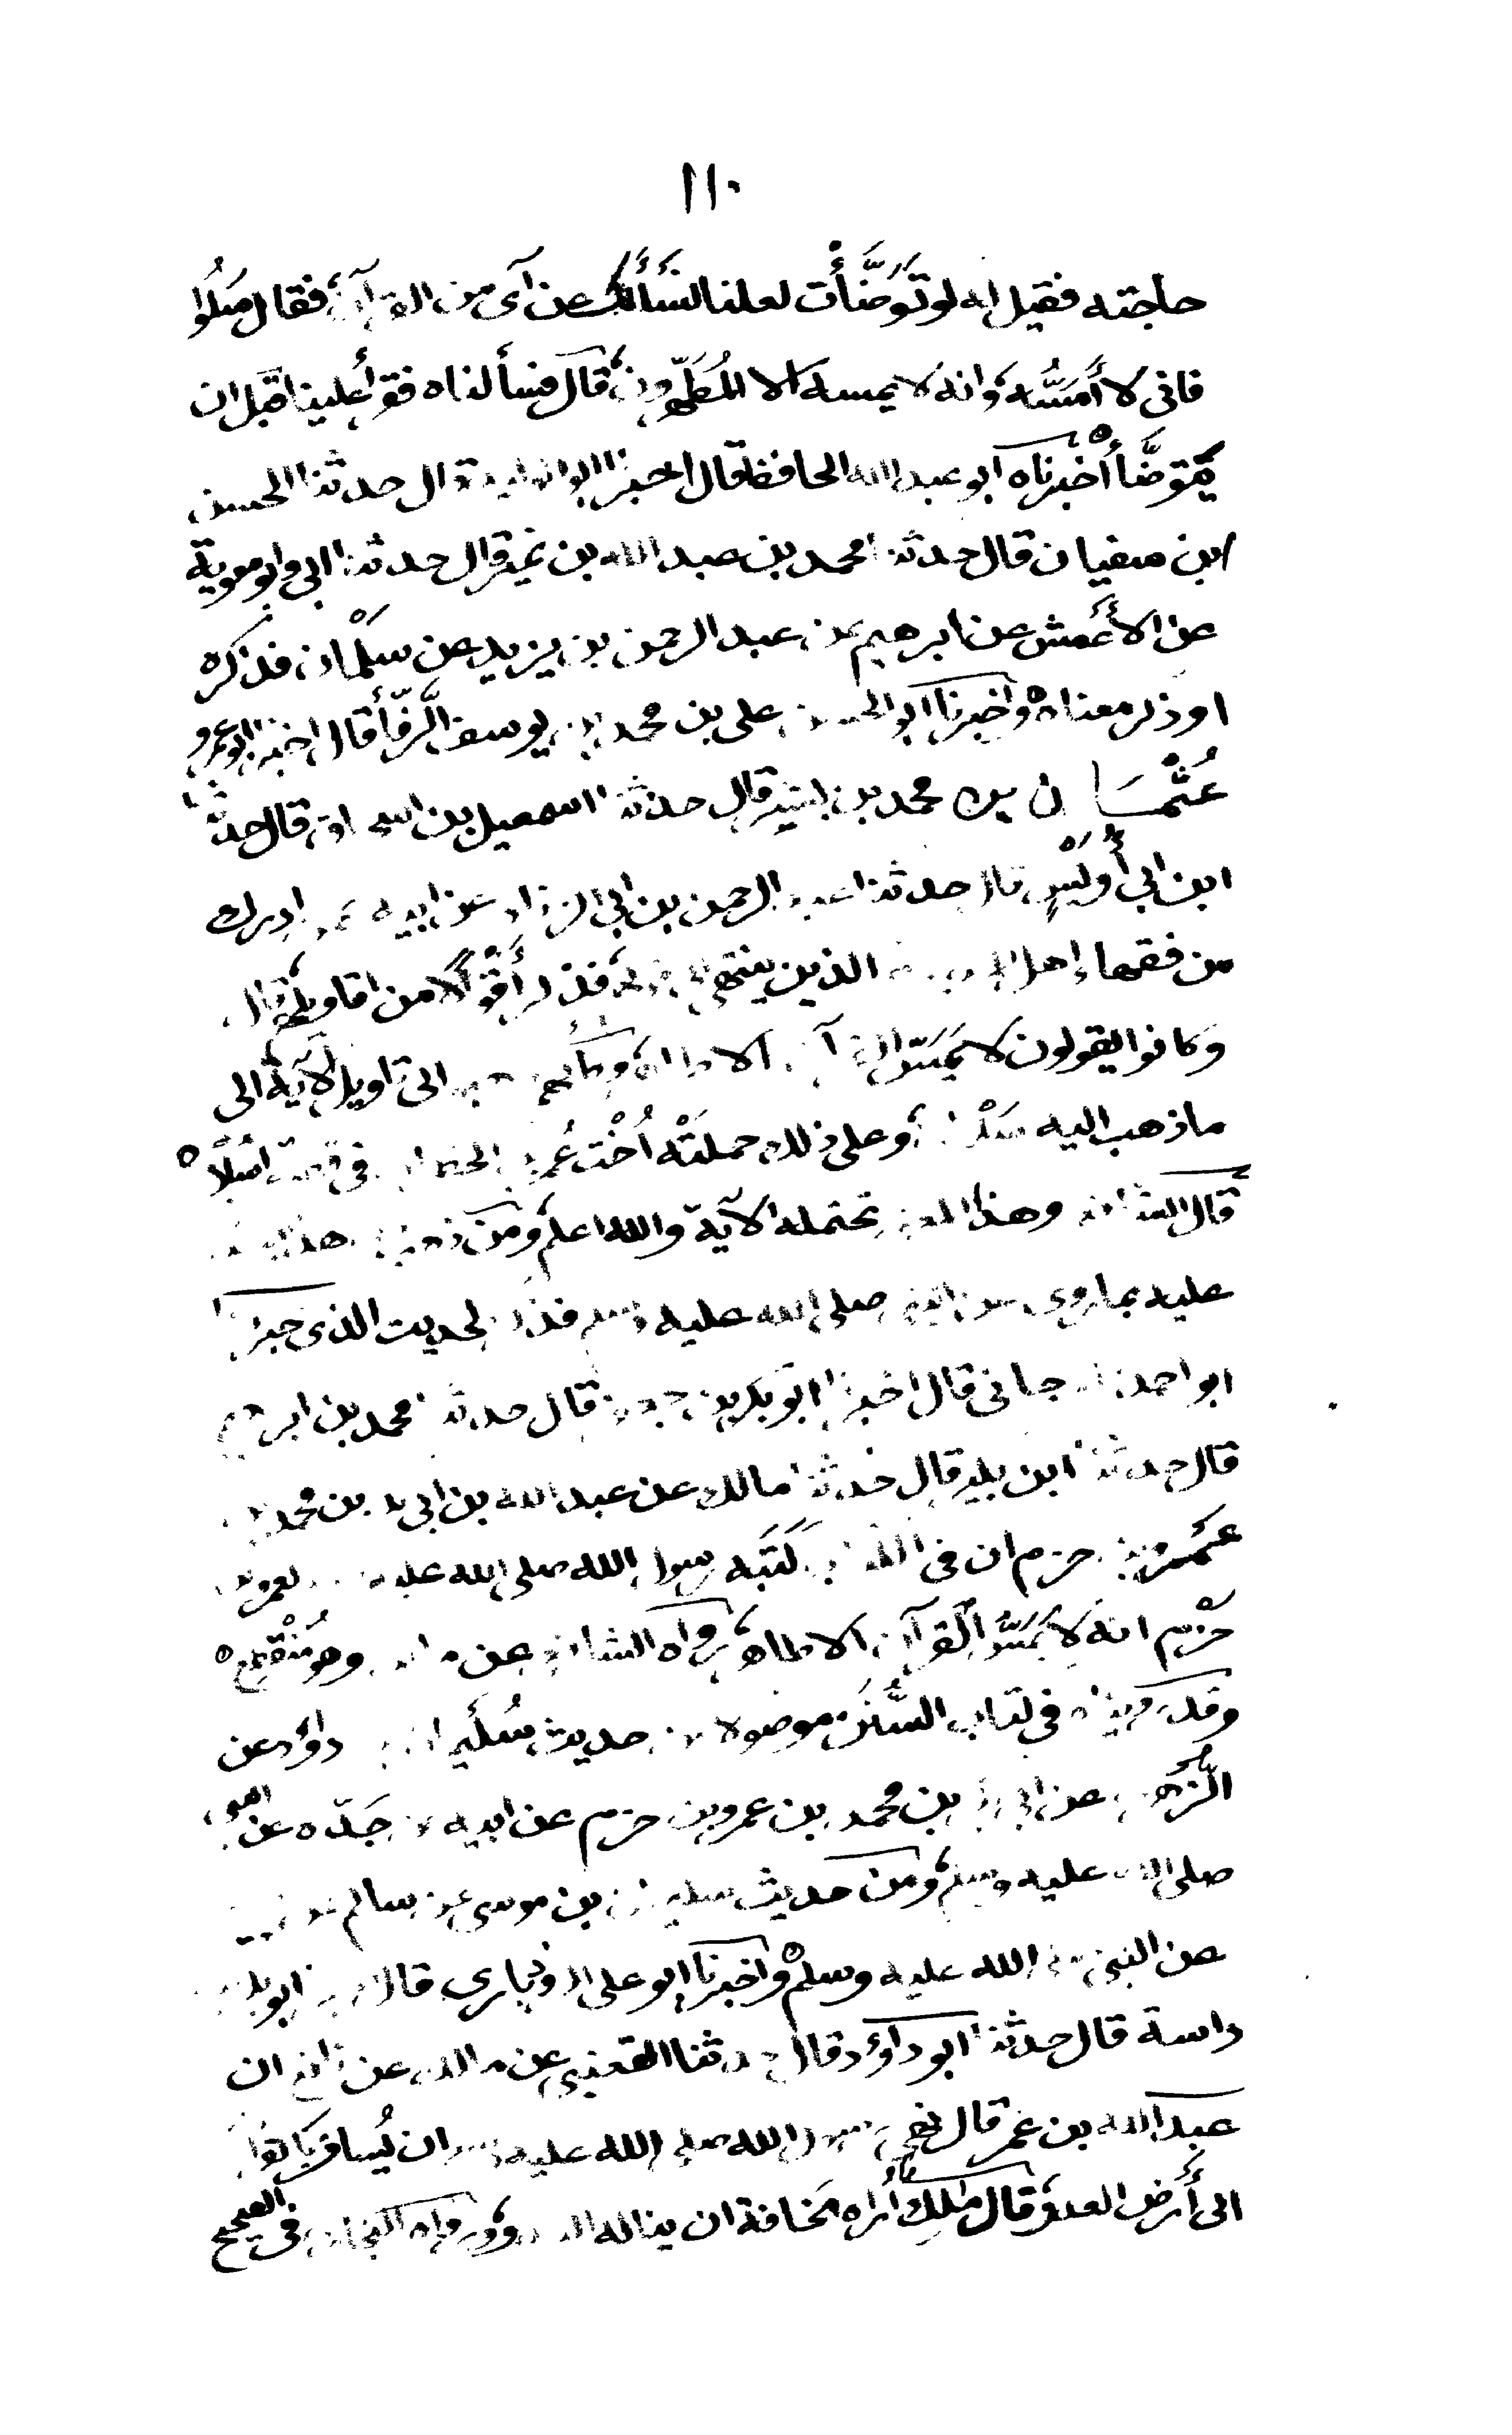 ١١٠
حاجته فقيل له لو تَوَضَّأْت لعلنا لنَسْأَلُك عن آى من القرآن فقال سَلُوا
فانى لا أَمَسُّه وانه لا يمسه الا المُطَهَّرون قال فسألناه فقرأ علينا قبل ان
يتوضَّأ أخْبرناه ابو عبد الله الحافظ قال اخبرنا ابو الوليد قال حدثنا الحسن
ابن سفيان قال حدثنا محمد بن عبد الله بن نمير قال حدثنا ابى وابو معوية
عن الأعْمش عن ابرهيم عن عبد الرحمن بن يزيد عن سلْمان فذكره
او ذكر معناه واخبرنا ابو الحسن على بن محمد بن يوسف الرَّفّأ قال اخبرنا ابو عمرو
عُثْمَان بن محمد بن بشر قال حدثنا اسمعيل بن اسحاق قال حدثنا
ابن ابى أُوَيْسٍ قال حدثنا عبد الرحمن بن ابى الزناد عن ابيه عمن ادرك
من فقهاء اهل المدينة الذين ينتهى الى قولهم فذكر أَقْوَالًا من اقاويلهم قال
وكانوا يقولون لا يَمَسّ القرآن الا طاهر وكأنهم ذهبوا فى تاويل الآية الى
ما ذهب اليه سَلْمان وعلى ذلك حملَتْه اُخْت عُمر بن الخطاب فى قصة اسْلَامه
قال الشافعى وهذا المعنى تحتمله الآية والله اعلم ومن ذهب
عليه بما روى عن النبى صلى الله عليه وسلم فذكر الحديث الذى اخبرنا
ابو احمد المهرجانى قال اخبرنا ابو بكر بن جعفر قال حدثنا محمد بن ابرهيم
قال حدثنا ابن بكير قال حدثنا مالك عن عبد الله بن ابى بكر بن محمد بن
عَمْرو بن حزم ان فى الكتاب الذى كَتَبَه رسول الله صلى الله عليه وسلم لعمرو بن
حَزْم انه لا يَمَسّ القرآن الا طاهر رواه الشافعى عن مالك وهو مُنْقطع
وقد رويناه فى كتاب السُّنَن موصولا من حديث سُلَيمان بن داؤد عن
الزُّهرى عن ابى بكر بن محمد بن عمرو بن حزم عن ابيه عن جَدّه عن النبى
صلى الله عليه وسلم ومن حديث سليمان بن موسى عن سالم عن ابيه
عن النبى صلى الله عليه وسلم واخبرنا ابو على الروذبارى قال اخبرنا ابو بكر بن
داسة قال حدثنا ابو داؤد قال حدثنا القعنبى عن مالك عن نافع ان
عبد الله بن عمر قال نهى رسول الله صلى الله عليه وسلم ان يُسافر بالقرآن
الى أَرض العدو قال مٰلِك أُراه مَخافة ان يناله العدو ورواه البخارى فى الصحيح